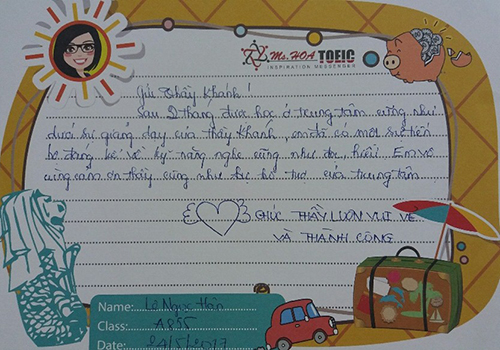 Ms. HOA TOEIC
INSPIRATION MESSENGER
Gửi Thầy Khánh!
Sau 2 tháng được học ở trung tâm cũng như
dưới sự giảng dạy của thầy Khánh, em đã có một sự tiến
bộ đáng kể về kỹ năng nghe cũng như đọc, hiểu. Em vô
cùng cảm ơn thầy cũng như sự hỗ trợ của trung tâm
CHÚC THẦY LUÔN VUI VẺ
VÀ THÀNH CÔNG
Name: Lê Ngọc Hân
Class: A855
Date: 24/5/2017